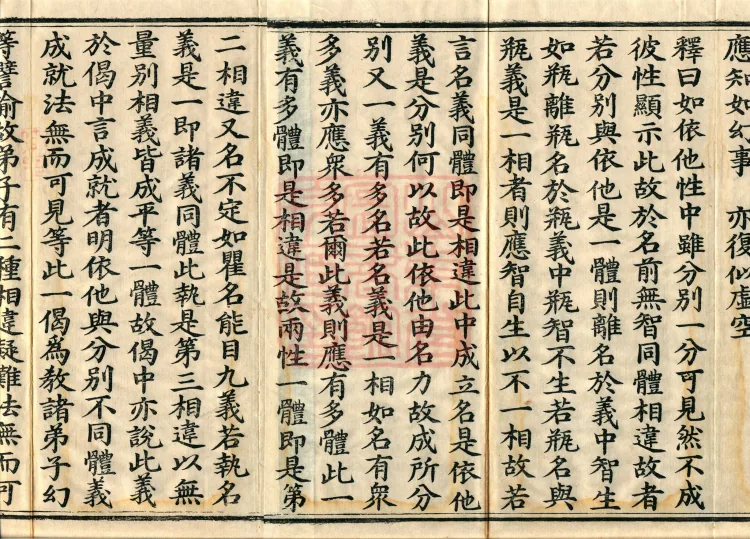 應知如幻事　亦復似虛空
釋曰如依他性中雖分別一分可見然不成
彼性顯示此故於名前無智同體相違故者
若分別與依他是一體則離名於義中智生
如瓶離瓶名於瓶義中瓶智不生若瓶名與
瓶義是一相者則應智自生以不一相故若
言名義同體即是相違此中成立名是依他
義是分別何以故此依他由名力故成所分
別又一義有多名若名義是一相如名有衆
多義亦應衆多若爾此義則應有多體此一
義有多體即是相違是故兩性一體即是第
二相違又名不定如瞿名能目九義若執名
義是一即諸義同體此執是第三相違以無
量別相義皆成平等一體故偈中亦說此義
於偈中言成就者明依他與分別不同體義
成就法無而可見等此一偈爲敎諸弟子幻
等譬喻故弟子有二種相違疑難法無而可